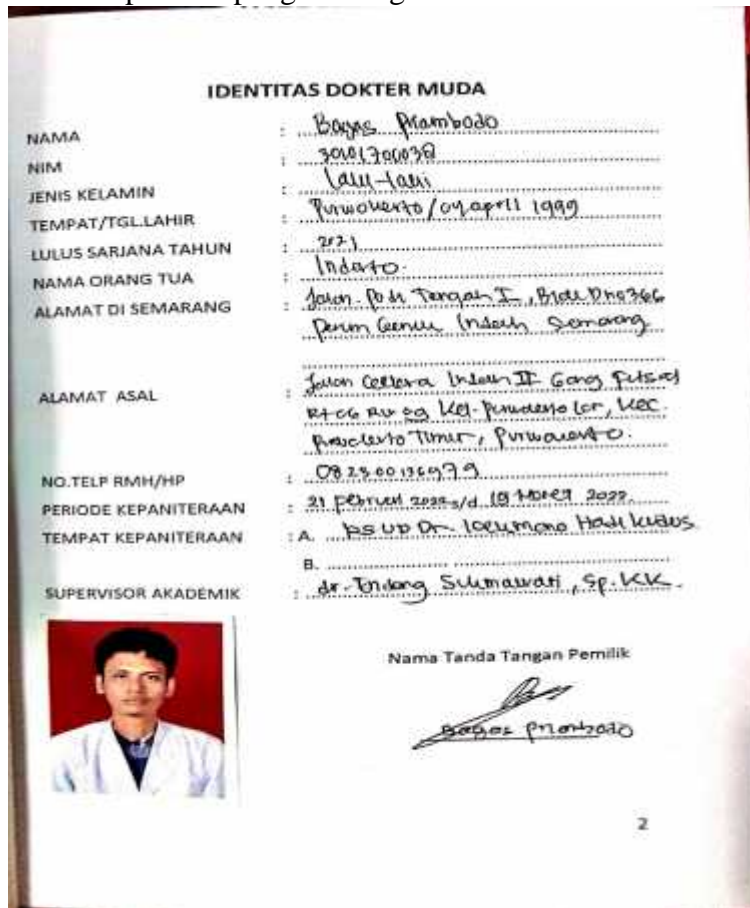 IDENTITAS DOKTER MUDA
NAMA : Bagas Prambodo
NIM : 30101700038
JENIS KELAMIN : Laki-laki
TEMPAT/TGL.LAHIR : Purwokerto / 04 april 1999
LULUS SARJANA TAHUN : 2021
NAMA ORANG TUA : Indarto.
ALAMAT DI SEMARANG : Jalan Tengah I, Blok D no 366
Perum Genuk Indah Semarang
ALAMAT ASAL : Jalan Indah II Gang
Rt 06 Rw Kel. Purwokerto Lor, Kec.
Purwokerto Timur, Purwokerto.
NO.TELP RMH/HP : 082300136979
PERIODE KEPANITERAAN : 21 Februari 2022 s/d 19 Maret 2022
TEMPAT KEPANITERAAN : A. RSUD Dr. Loekmono Hadi kudus
B.
SUPERVISOR AKADEMIK : dr. Endang Sp.KK.
Nama Tanda Tangan Pemilik
Bagas Prambodo
2